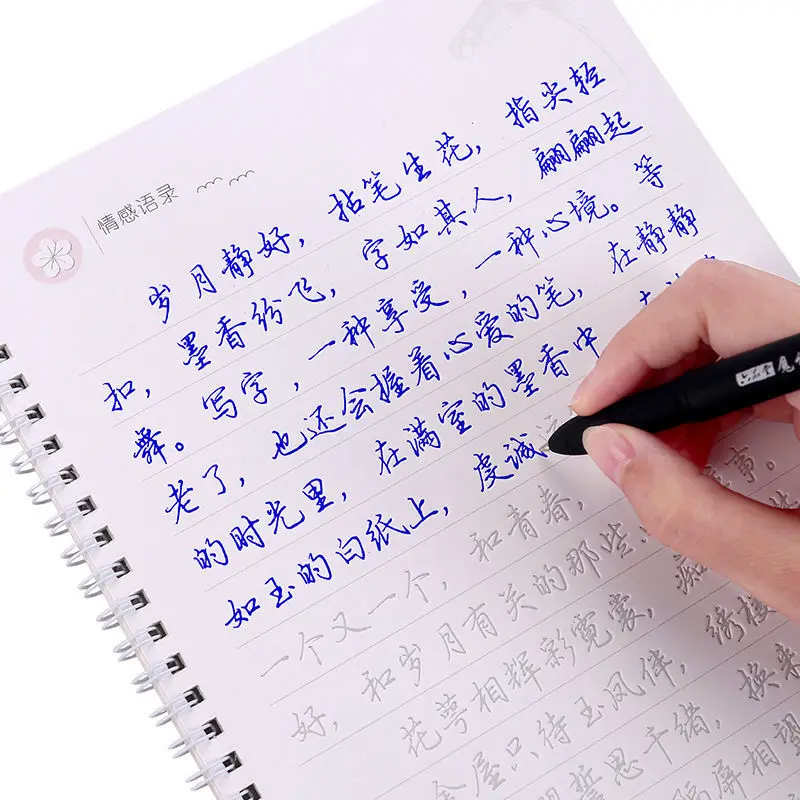 情感语录
岁月静好，拈笔生花，指尖轻
扣，墨香纷飞，字如其人，翩翩起
舞。写字，一种享受，一种心境。等
老了，也还会握着心爱的笔，在静静
的时光里，在满室的墨香中
如玉的白纸上，虔诚
一个又一个，和青春，
好，和岁月有关的那些 事。
花萼相辉彩霓裳，痴
金屋只待玉凤伴，绣楼
誓思千绪，换来
隔屏相望
六品堂